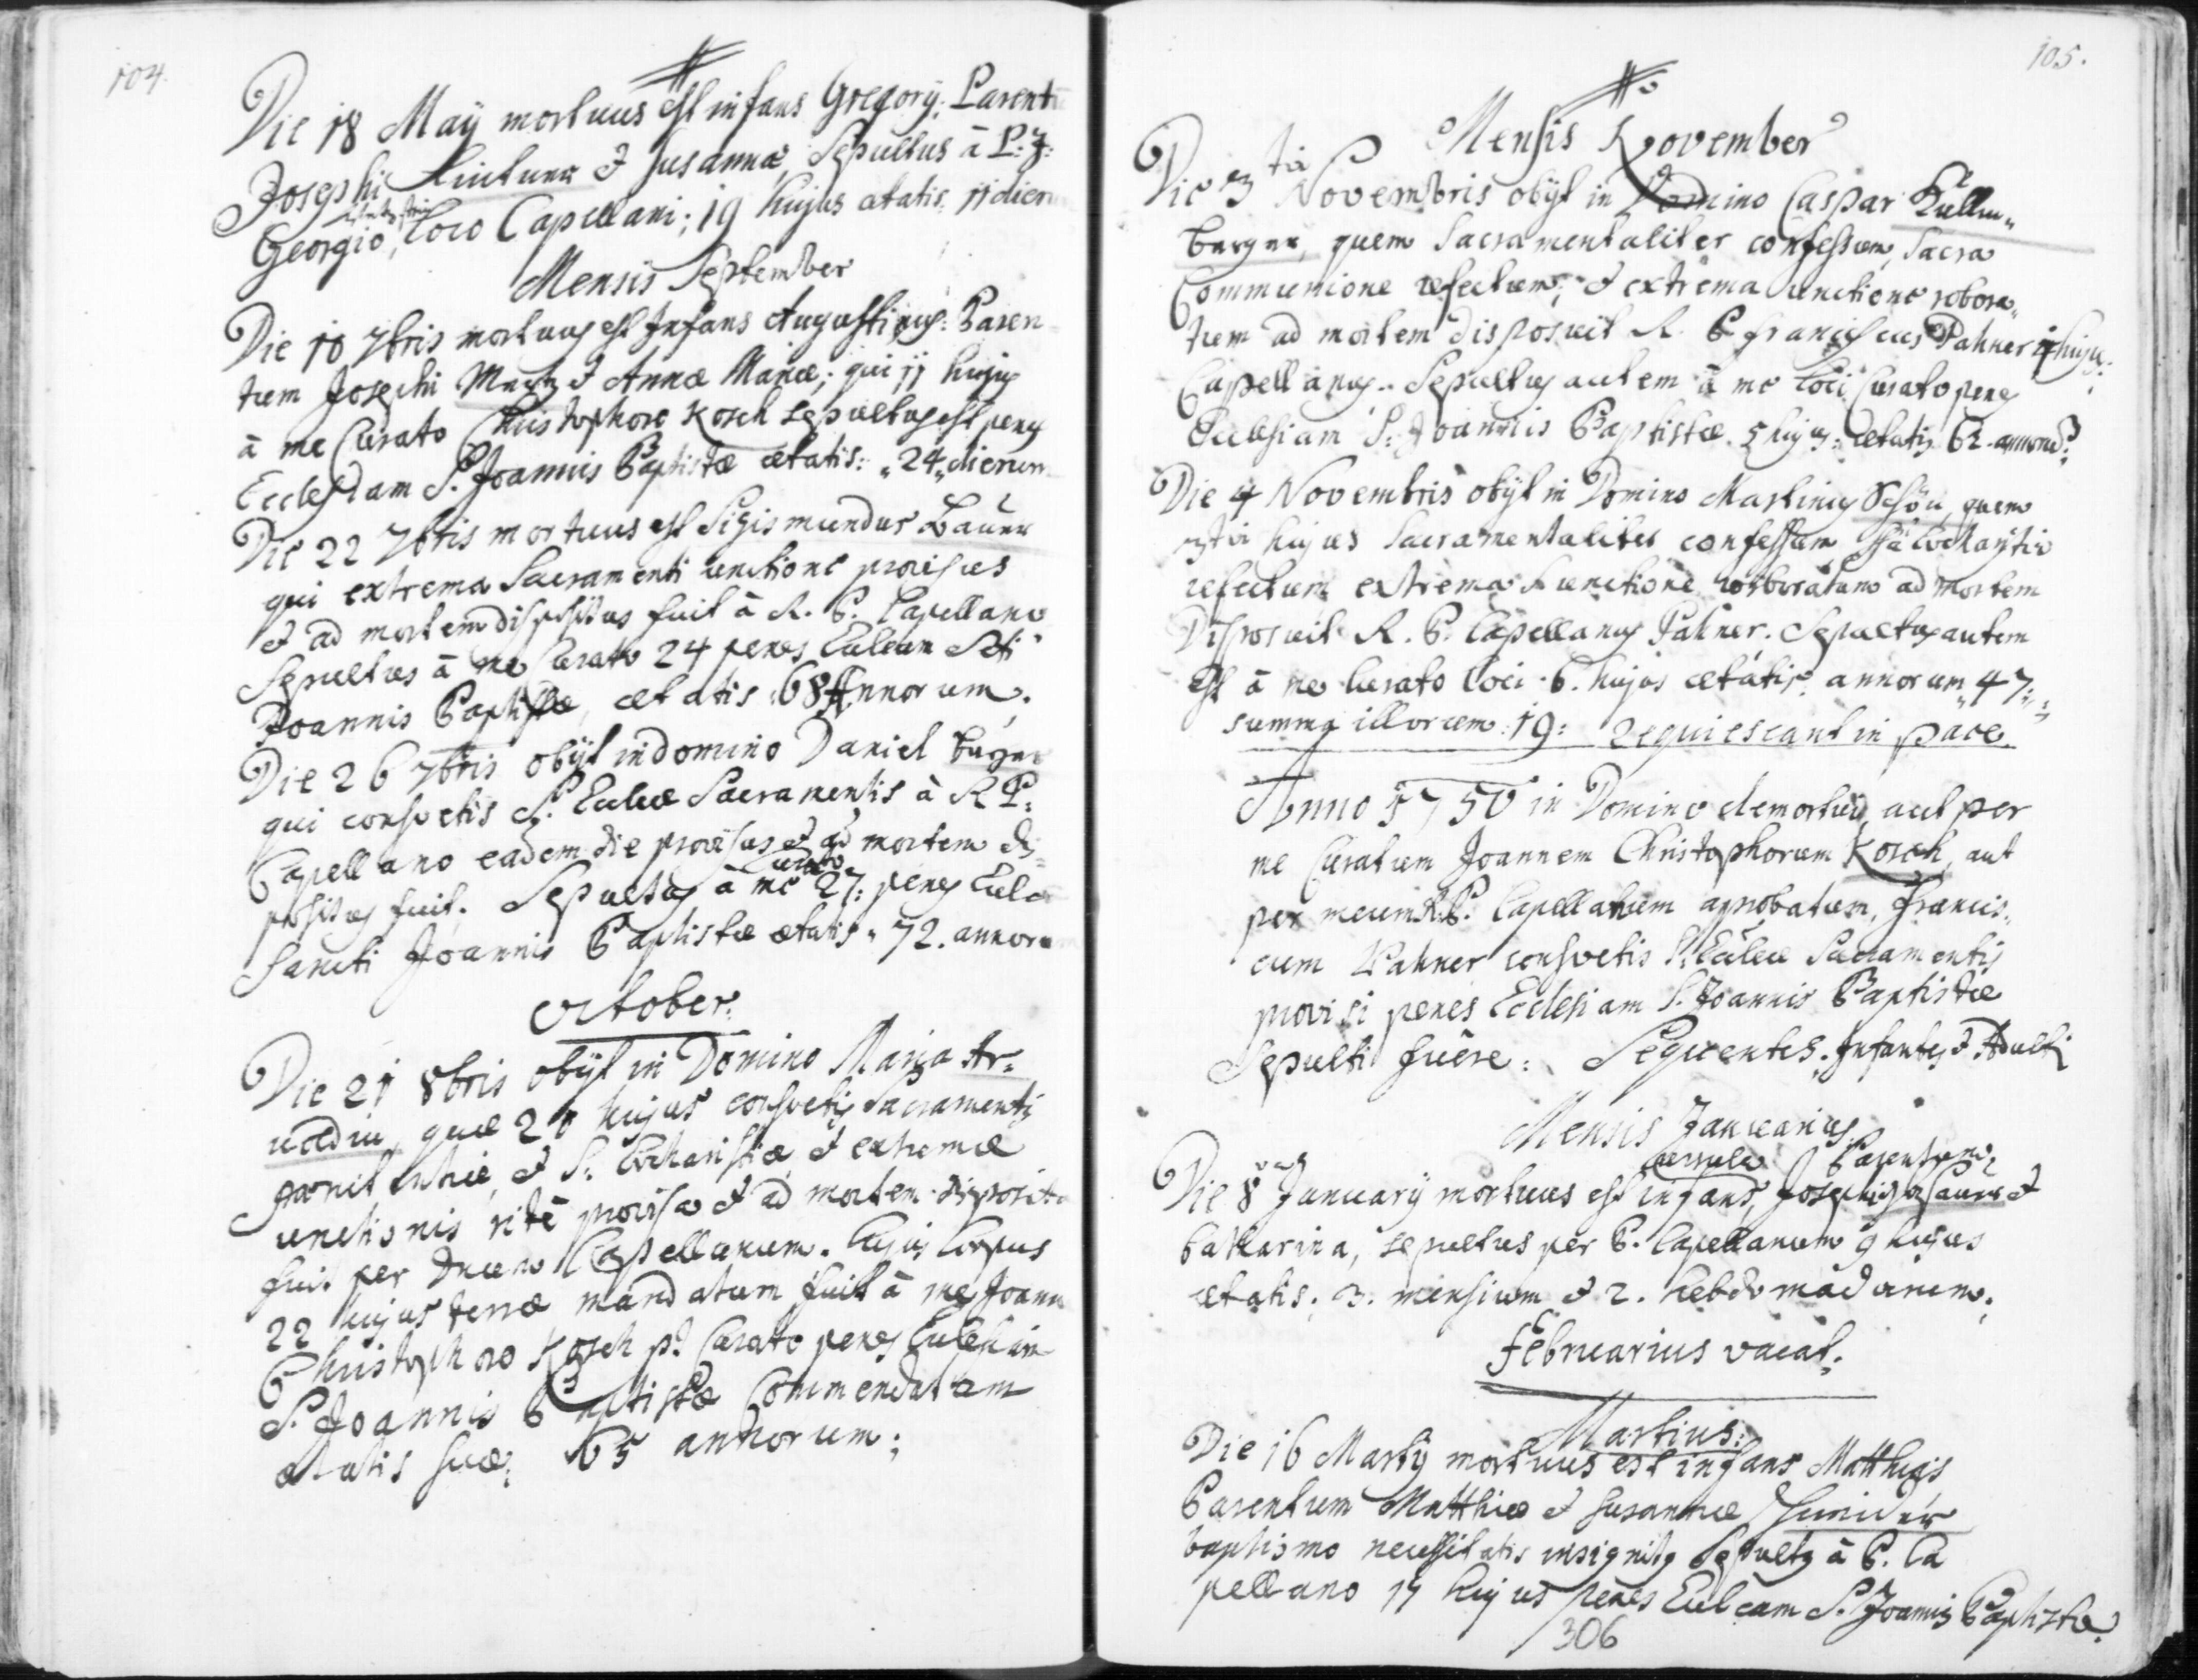 104.
Die 18 Maÿ mortuus est infans Gregorÿ: Parentū
Josephi Lintner & Susannæ, Sepultus à P: J:
Georgio, loco Capellani; 19 hujus ætatis 11 dierum
Mensis September
Die 10 7bris mortuus est Infans Augustinus: Paren
tum Josephi & Annæ Mariæ; qui 11 hujus
à me Curato Christophoro Kosch sepultus est penes
Ecclesiam S. Joannis Baptistæ ætatis: „24„ dierum
Die 22 7bris mortuus est Sigismundus Baúer
qui extrema Sacramenti unctione provisus
& ad mortem dispositus fuit à R. P. Capellano
Sepultus à me Curato 24 penes Eccleam Sti
Joannis Baptistæ, ætatis 68 Annorum.
Die 26 7bris obÿt in domino Daniel
qui consvetis S. Eccleæ Sacramentis à R P:
Capellano eadem die provisus & ad mortem dis=
positus fuit. Sepultus à me Curato 27: penes Eccleā
Sancti Joannis Baptistæ ætatis „ 72. annorum
October:
Die 21 8bris obÿt in Domino Maria Ar=
quæ 20 hujus consvetis Sacramentis
pœnitentiæ, & S. Eucharistiæ & extremæ
unctionis ritè provisa & ad mortem disposita
fuit per Capellanum. Cujus Corpus
22 hujus terræ mandatum fuit à me Joanne
Christophoro Kosch p: Curato penes Ecclesiam
S. Joannis Baptistæ Commendatam
ætatis suæ: 65 annorum;
105.
Mensis November
Die 3tia Novembris obÿt in Domino Caspar Küllen„
burger, quem Sacramentaliter confessum, Sacra
Communione refectum; & extrema unctione robora„
tum ad mortem disposuit R. P. Franciscus Pahner hujus
Capellanus. Sepultus autem à me loci Curato penes
Ecclesiam S: Joannis Baptistæ. 5 hujus: ætatis 62. annorū
Die 4 Novembris obÿt in Domino Martinus Schön, quem
3tia hujus Sacramentaliter confessum,
refectum extrema unctione roboratum ad mortem
Disposuit R. P. Capellanus Pahner. Sepultus autem
est à me Curato loci 6. hujus ætatis annorum „47„
summa illorum: 19: Requiescant in pace
Anno 1750 in Domino demortui, aut per
me Curatum Joannem Christophorum Kosch, aut
per meum R. P. Capellanum approbatum, Francis„
cum Pahner consvetis S. Eccleæ Sacramentis
provisi penes Ecclesiam S. Joannis Baptistæ
Sepulti fuêre: Sequentes. Infantes & Adulti
Mensis Januarius
Die 8va Januarÿ mortuus est infans, Ursula Parentum Josephi & 
Catharina, sepultus per P. Capellanum 9 hujus
ætatis: 3. mensium & 2. hebdomadarum.
Februarius vacat:
Martius:
Die 16 Martÿ mortuus est infans Matthias
Parentum Matthiæ & Susannæ
baptismo necessitatis insignitus Sepultus à P. Ca
pellano 17 hujus penes Eccleam S. Joannis Baptistæ.
306